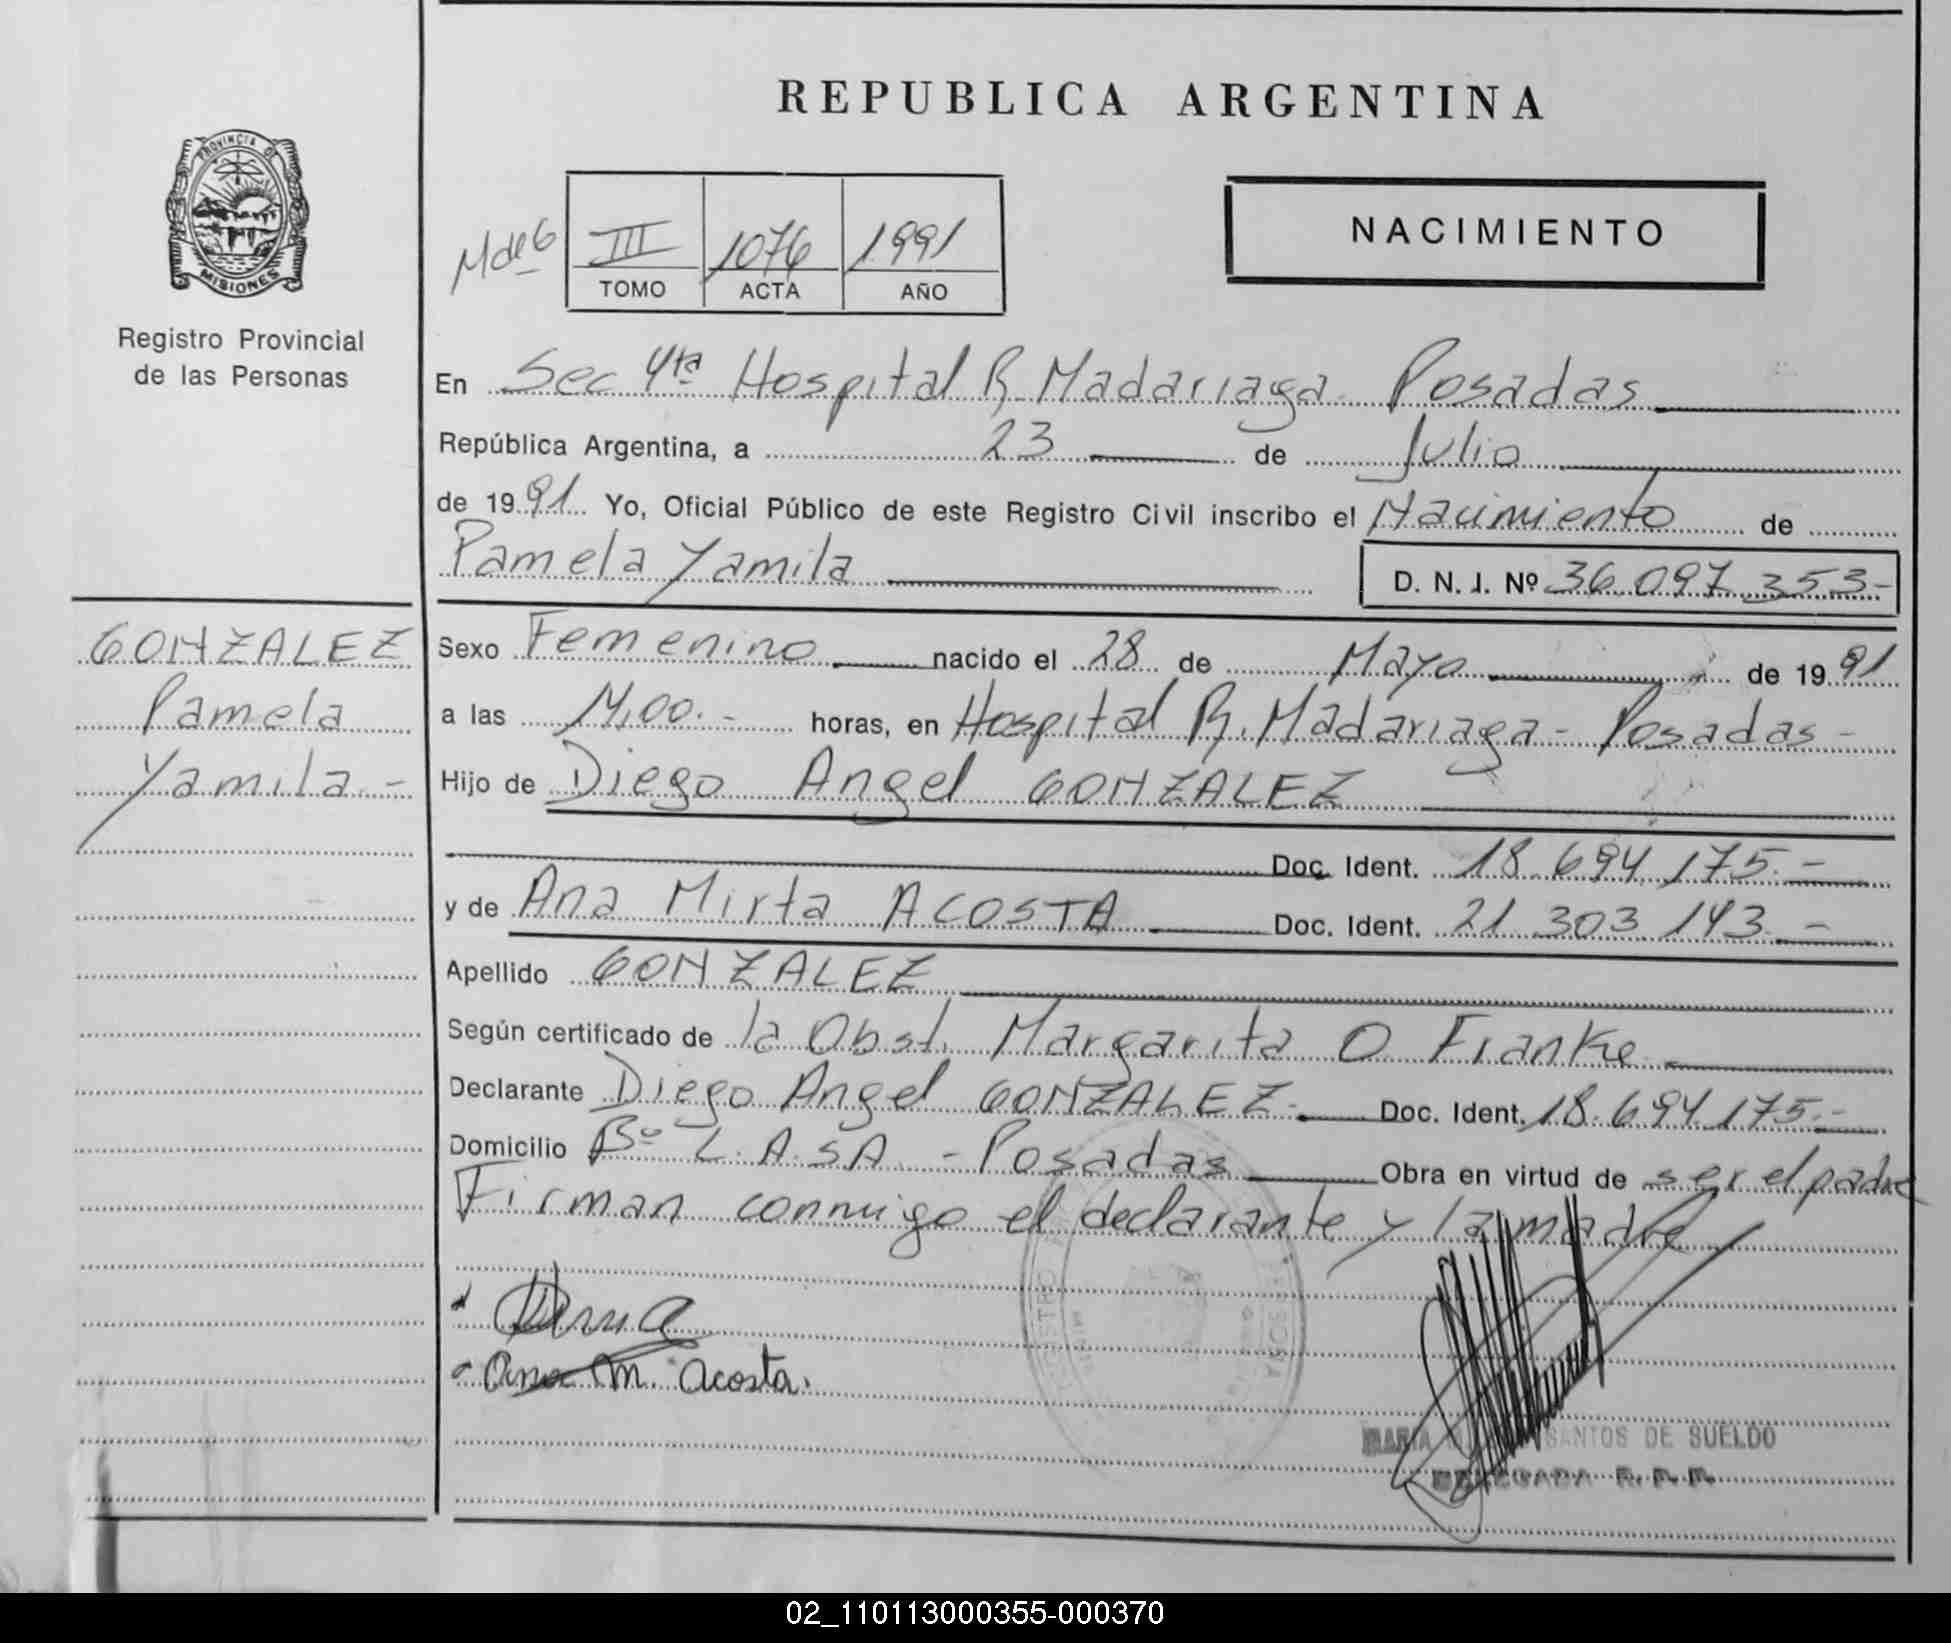 REPUBLICA ARGENTINA
PROVINCIA DE
MISIONES
Registro Provincial
de las Personas
NACIMIENTO
III 1076 1991
TOMO ACTA AÑO
En Sec 4ta Hospital R. Madariaga. Posadas
República Argentina, a 23 de Julio
de 1991 Yo, Oficial Público de este Registro Civil inscribo el Nacimiento de
Pamela Yamila D. N. I. Nº 36.097.353-
GONZALEZ
Pamela
Yamila.-
Sexo Femenino nacido el 28 de Mayo de 1991
a las horas, en Hospital R. Madariaga - Posadas -
Hijo de Diego Angel GONZALEZ
Doc. Ident. 18.694.175.-
y de Ana Mirta ACOSTA Doc. Ident. 21.303.143.-
Apellido GONZALEZ
Según certificado de la Obst. Margarita O Franke
Declarante Diego Angel GONZALEZ.- Doc. Ident. 18.694.175.-
Domicilio Bº L.A.SA. - Posadas Obra en virtud de ser el padre
Firman conmigo el declarante y la madre
Ana M. Acosta.
MARIA SANTOS DE SUELDO
DELEGADA R.P.P.
02_110113000355-000370